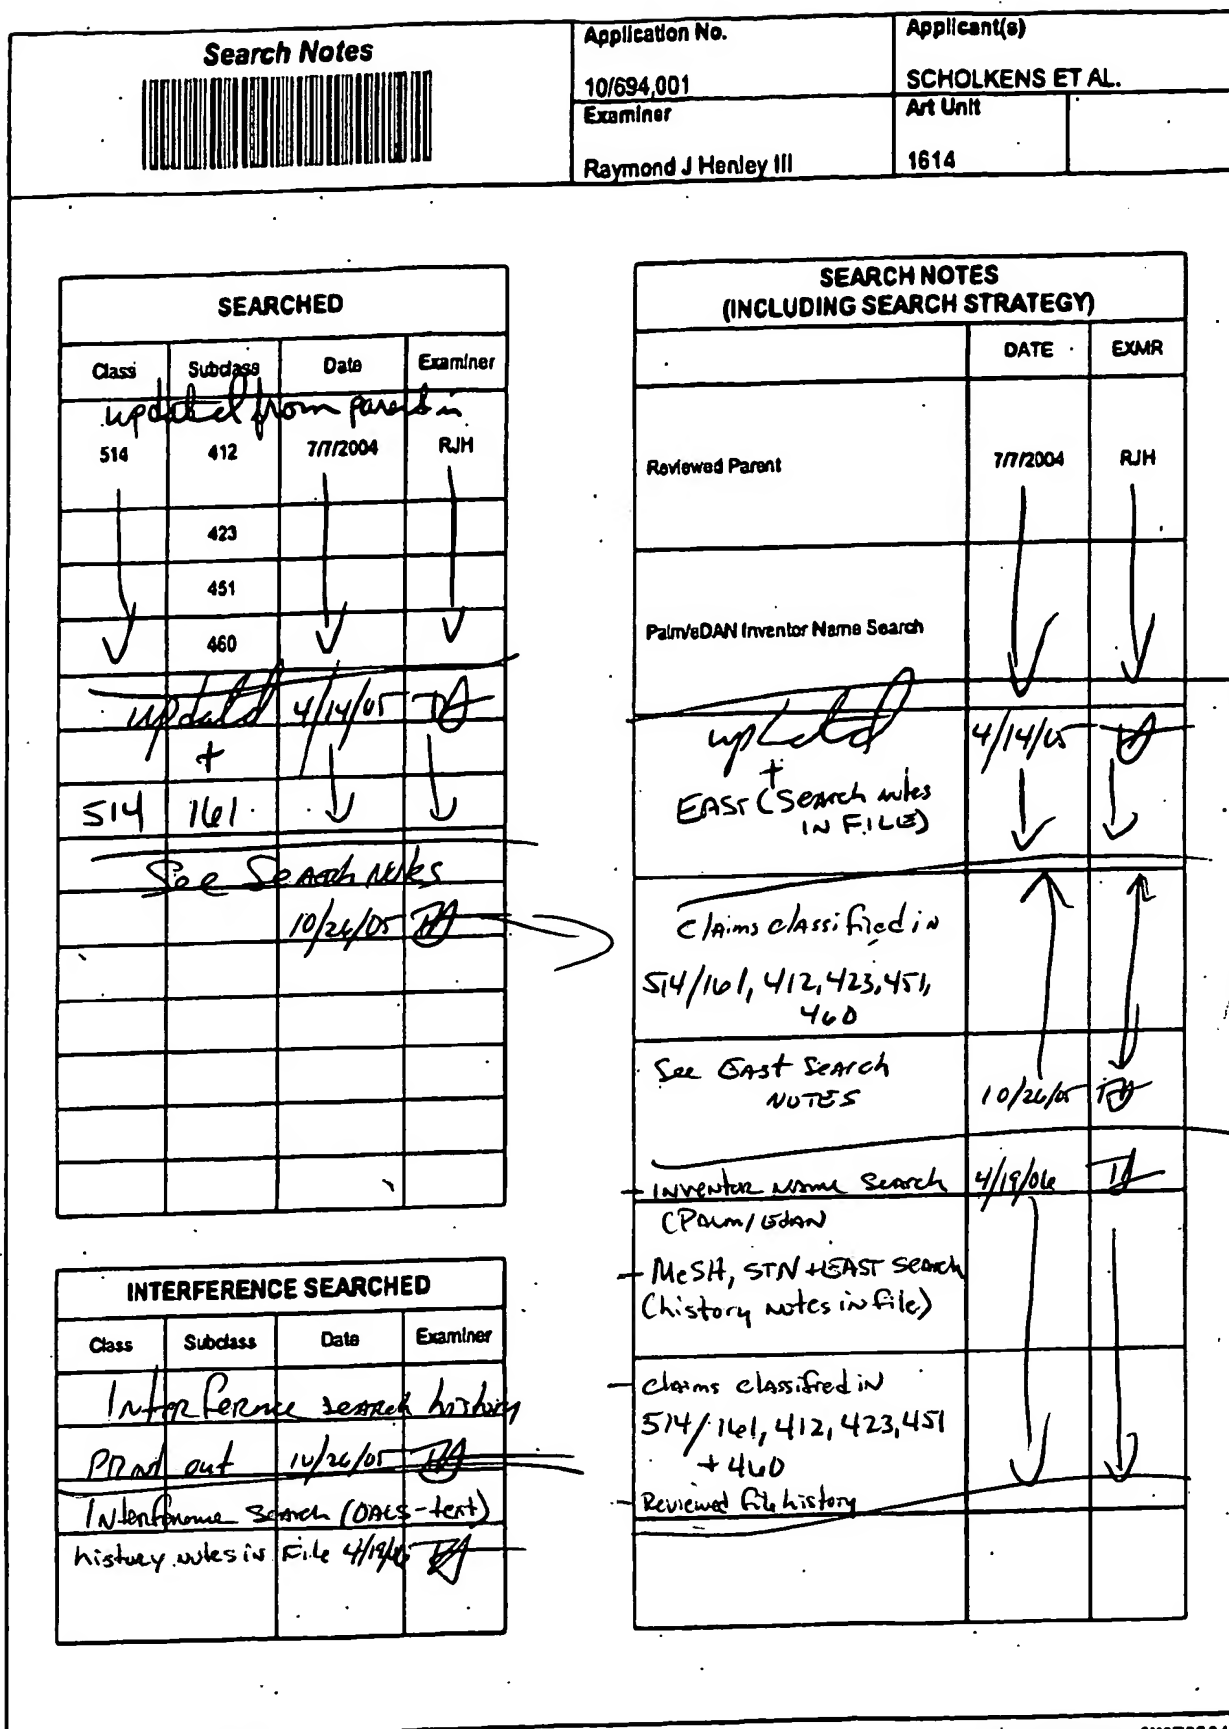 Search Notes
Application No.
10/694,001
Applicant(s)
SCHOLKENS ET AL.
Examiner
Raymond J Henley III
Art Unit
1614
SEARCHED
Class Subclass Date Examiner
updated from parent in
514 412 7/7/2004 RJH
423
451
460
updated 4/14/05
+
514 161
See Search Notes
10/26/05
INTERFERENCE SEARCHED
Class Subclass Date Examiner
Interference search history
Print out 10/26/05
Interference search (OACS-text)
history notes in File 4/19/06
SEARCH NOTES
(INCLUDING SEARCH STRATEGY)
DATE EXMR
Reviewed Parent 7/7/2004 RJH
Palm/eDAN Inventor Name Search
updated 4/14/05
+
EAST (Search notes
IN FILE)
Claims classified in
514/161, 412, 423, 451,
460
See EAST Search
NOTES 10/26/05
- Inventor Name Search 4/19/06
(Palm/EDAN)
- MeSH, STN + EAST Search
(history notes in file)
- Claims classified in
514/161, 412, 423, 451
+ 460
- Reviewed file history